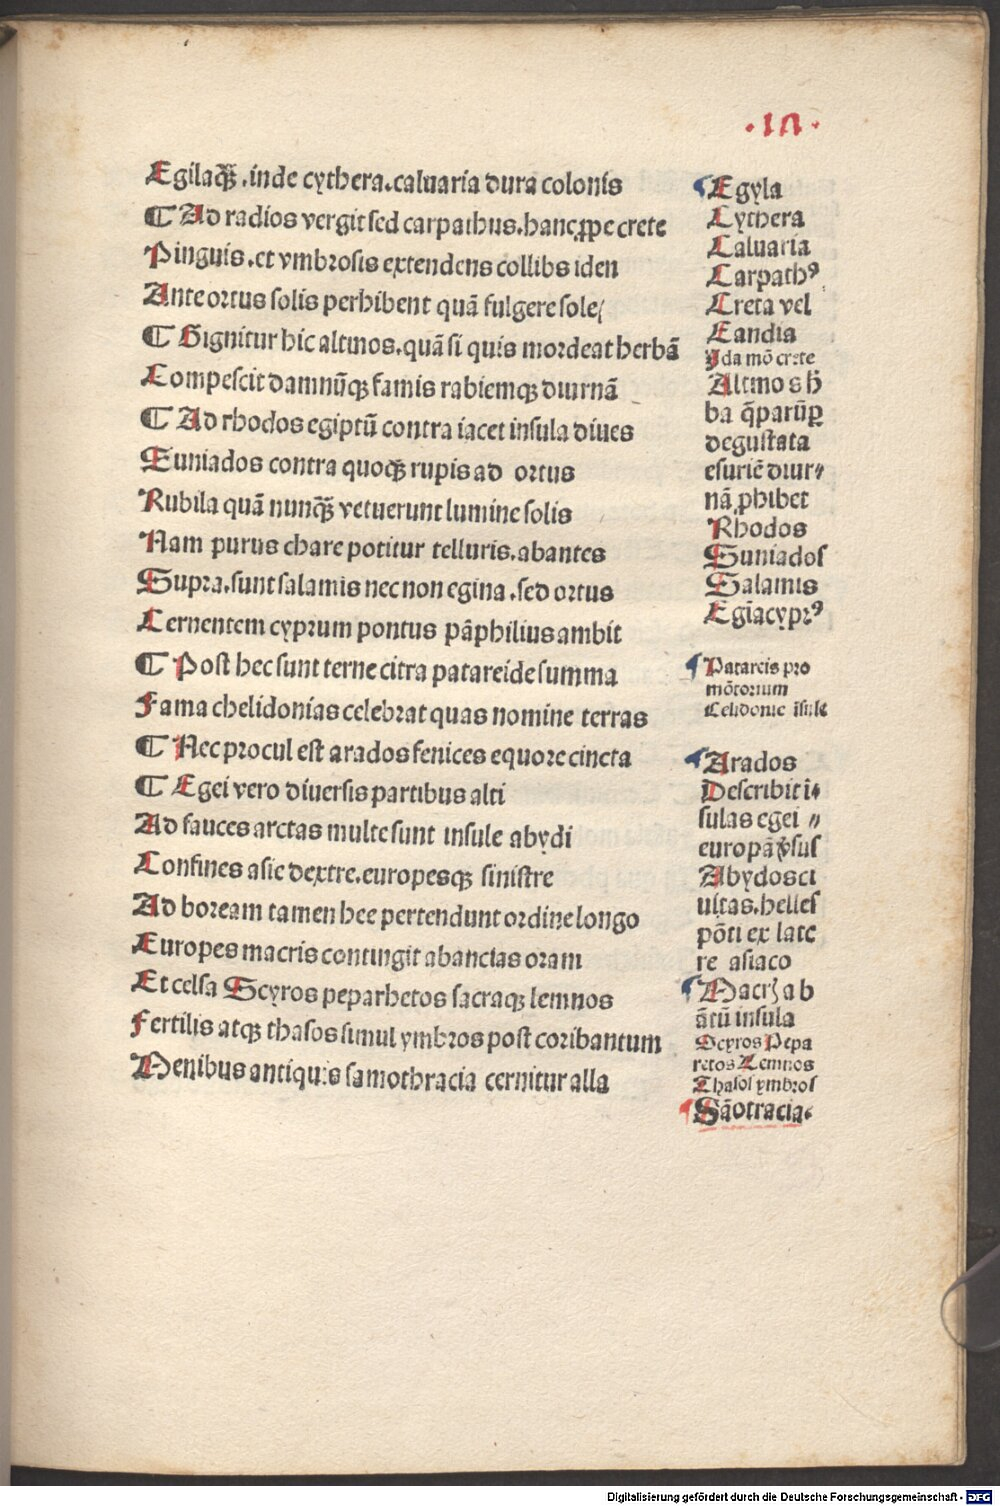 ·ın·
Egilaqʒ.inde cythera.caluaria dura colonis
¶ Ad radios vergit sed carpathus.hanc ꝓpe crete
Pinguis.et vmbrosis extendens collibs iden
Ante ortus solis perhibent quā fulgere sole
¶ Gignitur hic altmos.quā si quis mordeat herbā
Compescit damnūqʒ famis rabiemqʒ diurnā
¶ Ad rhodos egiptū contra iacet insula diues
Suniados contra quoqʒ rupis ad ortus
Rubila quā nunqʒ vetuerunt lumine solis
Nam purus chare potitur telluris.abantes
Supra.sunt salamis nec non egina.sed ortus
Cernentem cyprum pontus pāphilius ambit
¶ Post hec sunt terne citra patareide summa
Fama chelidonias celebrat quas nomine terras
¶ Nec procul est arados fenices equore cincta
¶ Egei vero diuersis partibus alti
Ad fauces arctas multe sunt insule abydi
Confines asie dextre.europesqʒ sinistre
Ad boream tamen hee pertendunt ordine longo
Europes macris contingit abancias oram
Et celsa Scyros peparhetos sacraqʒ lemnos
Fertilis atqʒ thasos simul ymbros post coribantum
Menibus antiquis samothracia cernitur alla
Egyla
Cythera
Caluaria
Carpathꝰ
Creta vel
Candia
Yda mō crete
Altmos h̄
ba q̄ parūꝑ
degustata
esuriē diur⸗
nā ꝓhibet
Rhodos
Suniados
Salamis
Egīa cyprꝰ
Patareis pro
mōtorium
Celidonie īsule
Arados
Describit i⸗
sulas egei ⸗
europā ꝟsus
Abydos ci
uitas.helles
pōti ex late
re asiaco
Macrʒ ab
ātū insula
Scyros Pepa
retos Lemnos
Thasos ymbros
Sāotracia.
Digitalisierung gefördert durch die Deutsche Forschungsgemeinschaft - DFG